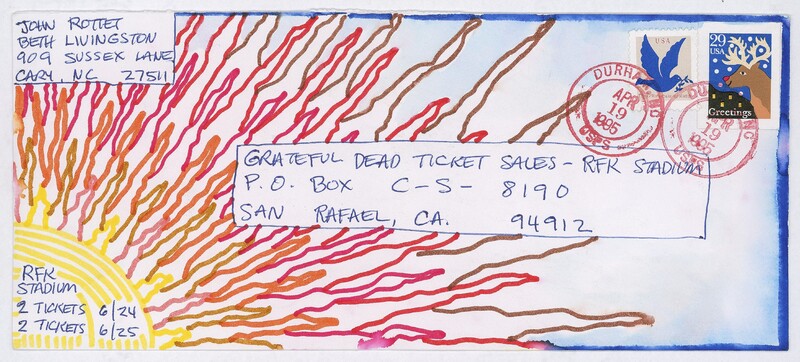 JOHN ROTTET
BETH LIVINGSTON
909 SUSSEX LANE
CARY, NC 27511
USA
29
USA
Greetings
DURHAM, NC
APR
19
1995
USPS
DURHAM, NC
APR
19
1995
USPS
GRATEFUL DEAD TICKET SALES - RFK STADIUM
P.O. BOX C-S- 8190
SAN RAFAEL, CA. 94912
RFK
STADIUM
2 TICKETS 6/24
2 TICKETS 6/25